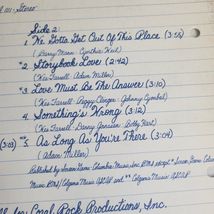 1111 - Stereo
Side 2
1. We Gotta Get Out Of This Place (3:58)
(Barry Mann - Cynthia Weil)
*2. Storybook Love (2:42)
(Wes Farrell - Adam Miller)
*3. Love Must Be The Answer (3:10)
(Wes Farrell - Peggy Clinger - Johnny Cymbal)
4. Something's Wrong (3:12)
(Wes Farrell - Danny Janssen - Bobby Hart)
(3:03) **5. As Long As You're There (3:04)
(Adam Miller)
Published by Screen Gems-Columbia Music, Inc. BMI except * Screen Gems-Columbia
Music, BMI/Calgems Music ASCAP and ** Calgems Music ASCAP
Coral Rock Productions, Inc.